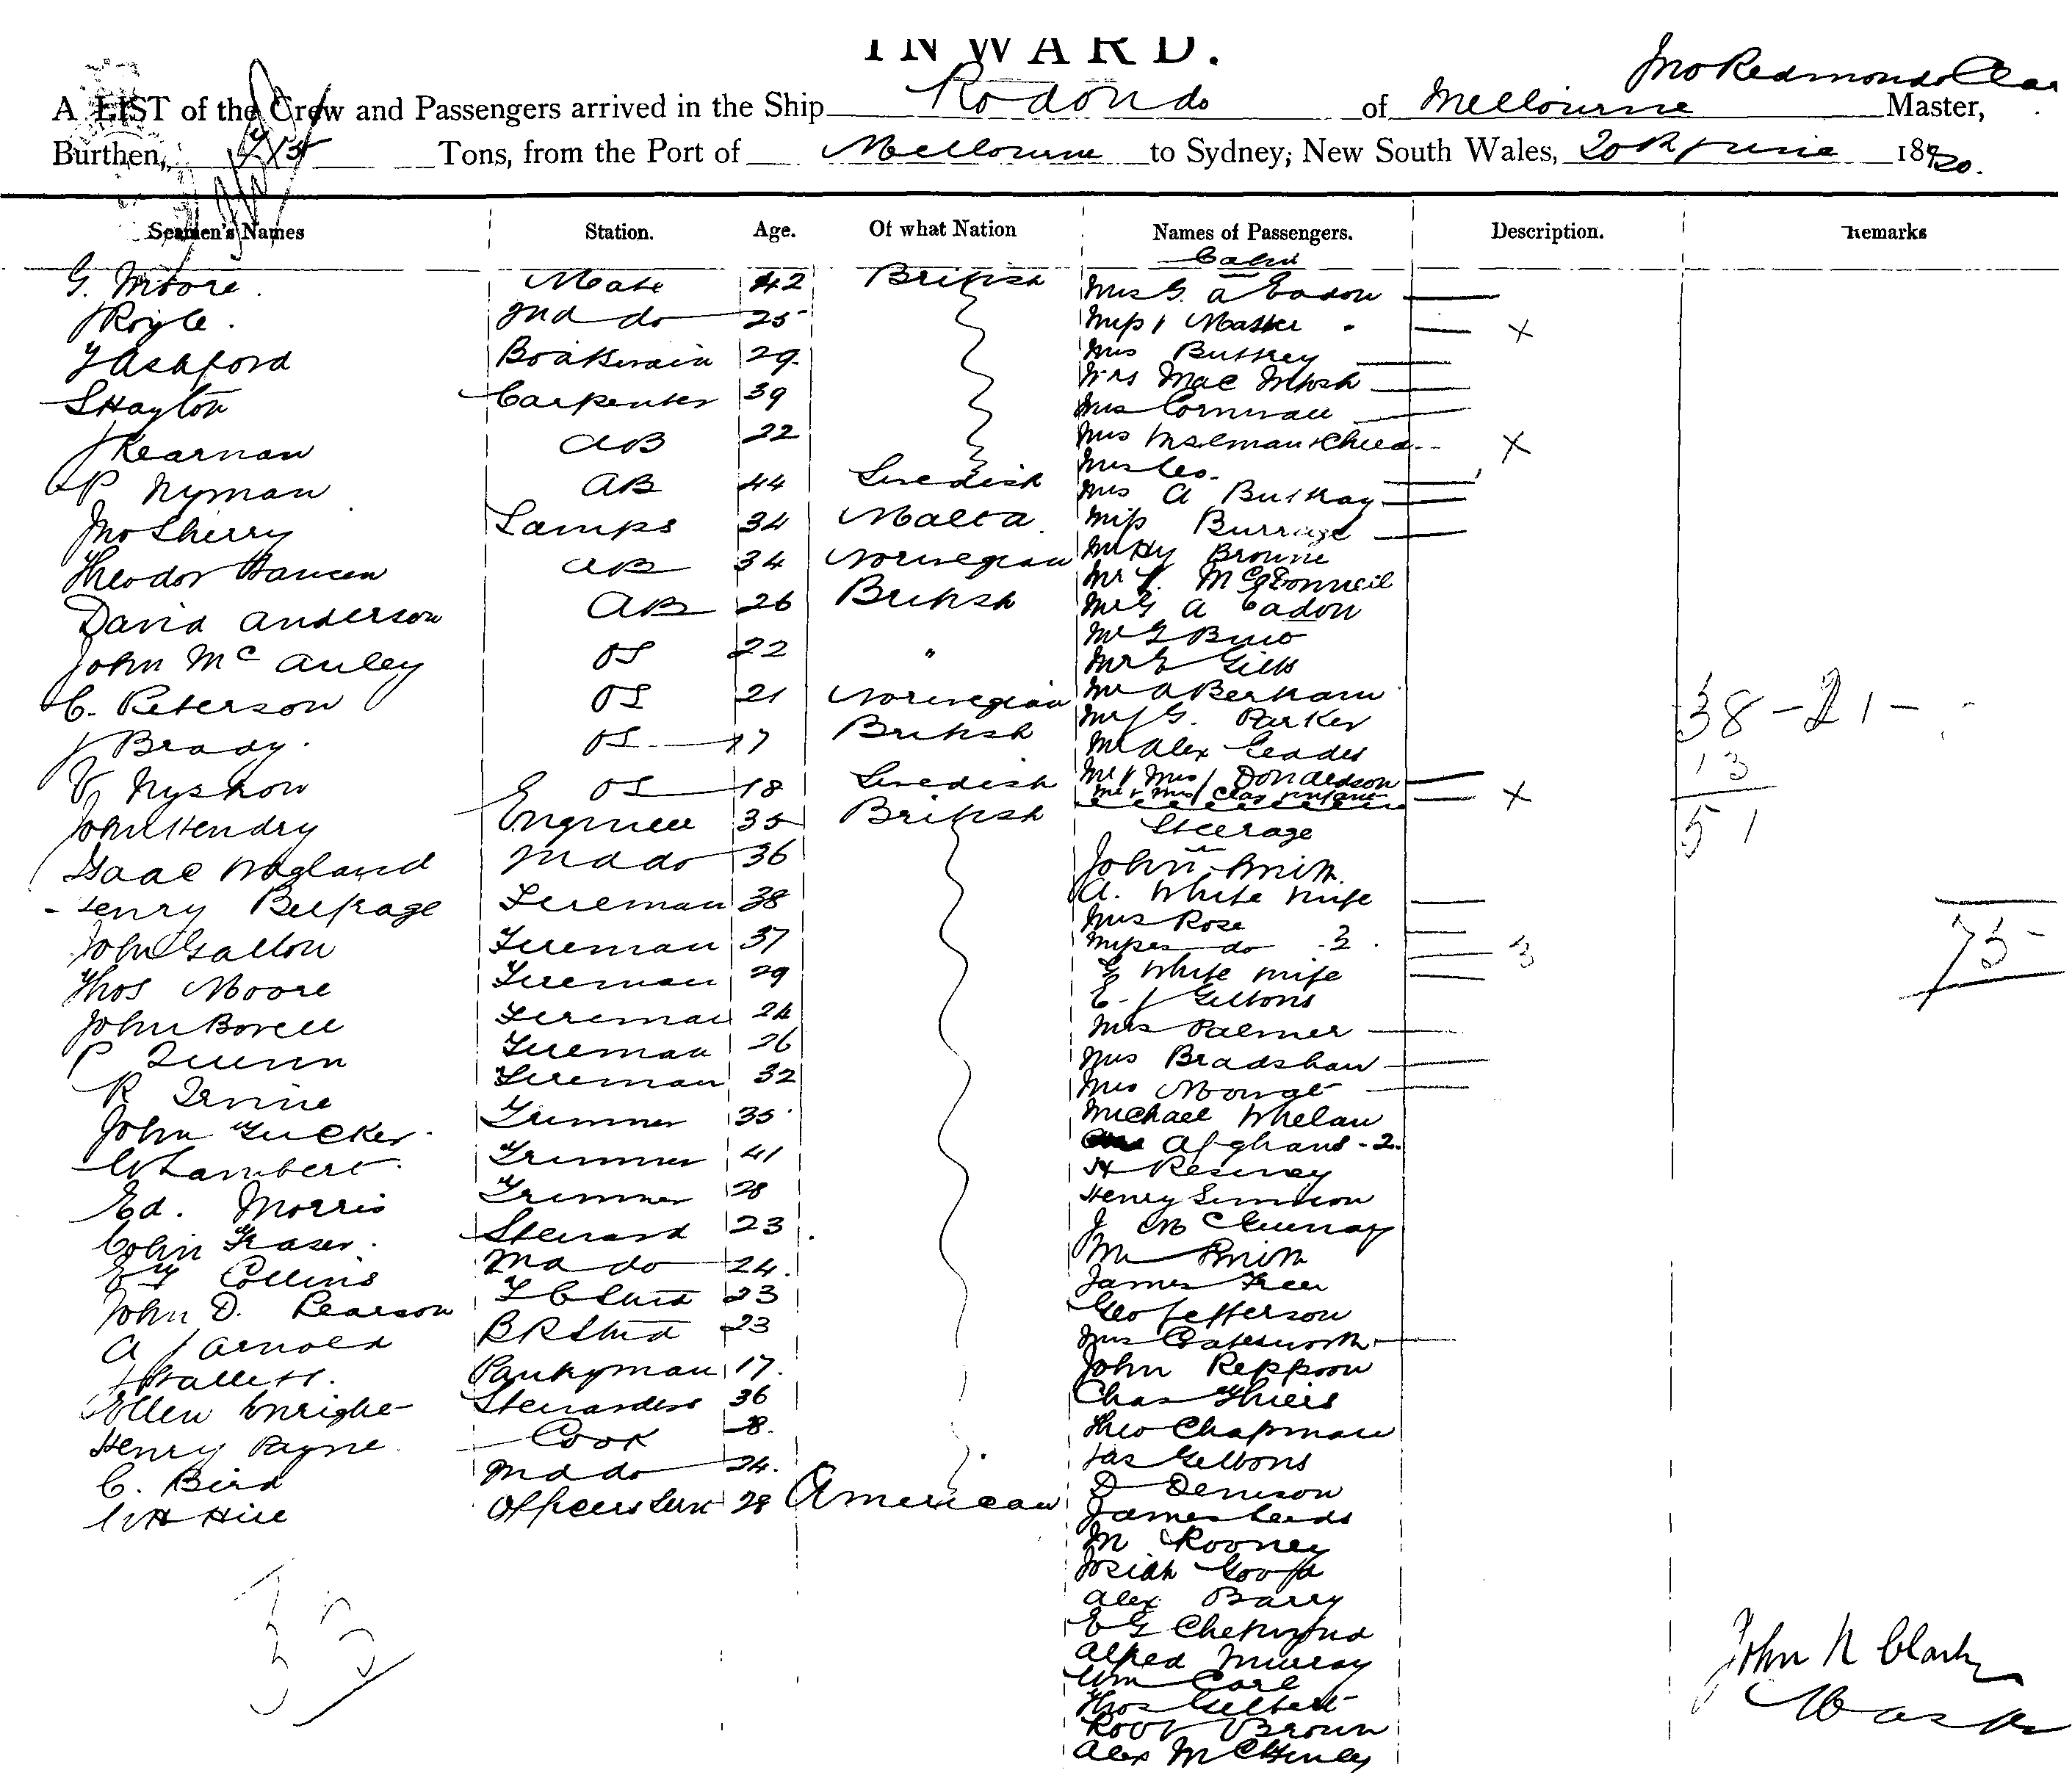 INWARD.
Jno Redmond Clar
A LIST of the Crew and Passengers arrived in the Ship Rodondo of Melbourne Master,
Burthen, Tons, from the Port of Melbourne to Sydney, New South Wales, 20th June 1890.
Seamen's Names Station. Age. Of what Nation Names of Passengers. Description. Remarks
Cabin
G. Moore. Mate 42 British Mrs G. A Eadon
J Royle. 2nd do 25 Miss / Master " X
T Ashford Boatswain 29 Mrs Buttrey
S Hayton Carpenter 39 Mrs Mac Intosh
Mrs Cornwall
J Kearnan AB 22 Mrs & Child X
Mrs Leo.
P Nyman AB 44 Swedish Mrs A
Jno Sherry Lamps 34 Malta Miss Burrage
Theodor Hansen AB 34 Norwegian Mr Hy Browne
Mr J. McConneil
David Anderson AB 26 British Mr G A Eadon
Mr G
John McAuley OS 22 " Mr E Gill
C. Peterson OS 21 Norwegian Mr A Bertram
Mr J G. Parker 38-21-
J Brady. OS 17 British Mr Alex Eeades
13
V Nystrom OS 18 Swedish Mr & Mrs J Donaldson
Mr & Mrs Clay infant X
John Hendry Engineer 35 British Steerage
51
Isaac Wagland 2nd do 36 John Smith
Henry Belfrage Fireman 38 A. White wife
Mrs Rose
John Gallon Fireman 37 Misses do 3. 3
75
Thos Moore Fireman 29 G White wife
E. J Gibbons
John Bovell Fireman 24 Mrs Palmer
P Quinn Fireman 26 Mrs Bradshaw
R Irvine Fireman 32 Mrs
John Tucker Trimmer 35 Michael Whelan
Afghans - 2.
W Lambert. Trimmer 41 H
Ed. Morris Trimmer 28 Henry
Colin Fraser. Steward 23 J
E F Collins 2nd do 24. M Smith
John D. Pearson F C Stwd 23 James Freer
Geo Jefferson
A J Arnold B R Stwd 23 Mrs
H Hallett. Pantryman 17. John Reppoon
Ellen Enright Stewardess 36 Chas
Henry Payne. Cook 8. Theo Chapman
C. Bird 2nd do 24. Jas Gibbons
D Denison
W H Hill Officers Servt 28 American James Leeds
M Rooney
Josiah
Alex Barry
E G
35
Alfred Murray
Wm Carl
Thos Gilbert
Robt Brown
Alex McKinley
John R Clark
Master